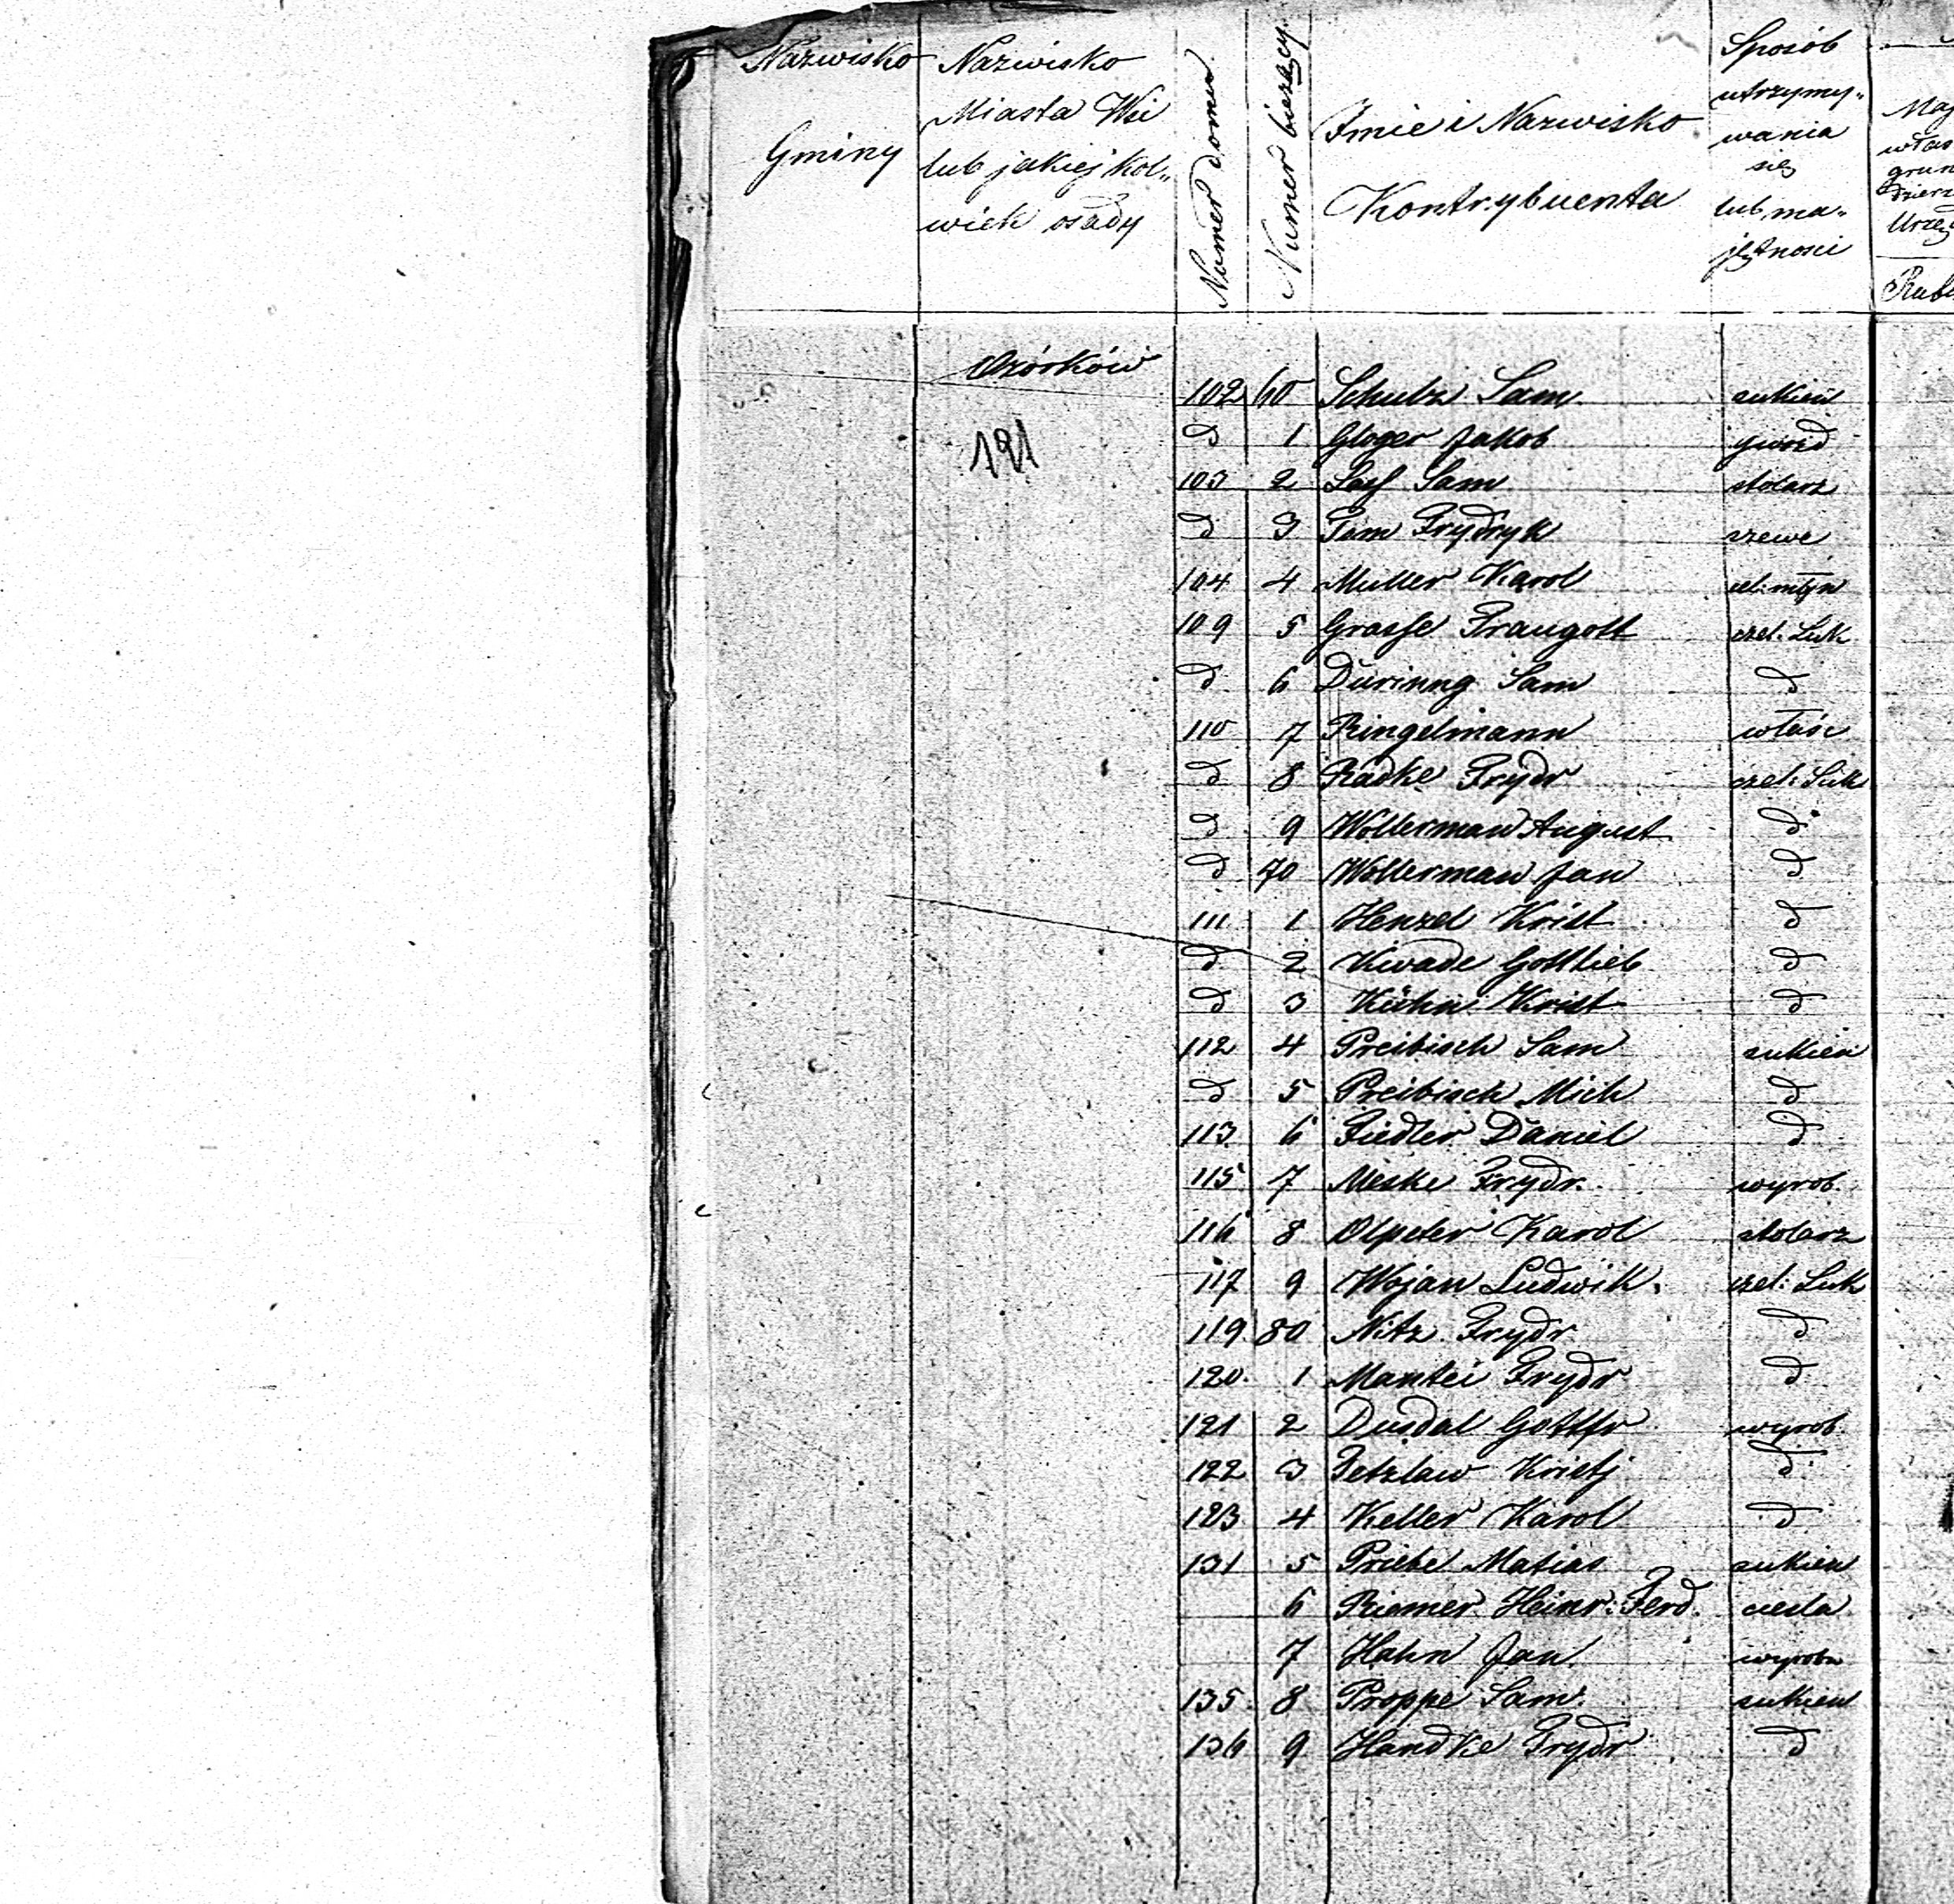 Nazwisko Gminy
Nazwisko Miasta Wsi lub jakiej kol„ wiek osady
Numer domu
Numer bieżący
Imie i Nazwisko Kontrybuenta
Sposób utrzymy„ wania się lub ma„ jętności
Ozórków
191
102 60 Schulz Sam sukien
d 1 Gloger Jakob gwozd
103 2 Sam stolarz
d 3 Frydryk szewc
104 4 Muller Karol młyn
109 5 Grasse Traugott czel. Suk
d 6 Düring Sam d
110 7 Ringelmann właśc
d 8 Radke Frydr czel: Suk
d 9 Wollerman August d
d 70 Wollerman Jan d
111 1 Henzel Krist d
d 2 Kwade Gottlieb d
d 3 Kühn Krist d
112 4 Preibisch Sam sukien
d 5 Preibisch Mich d
113 6 Fiedler Daniel d
115 7 Meske Frydr. wyrob.
116 8 Olpeter Karol stolarz
117 9 Wojan Ludwik. czel: Suk
119 80 Nitz Frydr d
120 1 Mantei Frydr d
121 2 Dusdal Gottfr wyrob.
122 3 Petzlaw Kristj d
123 4 Keller Karol d
131 5 Priebe Matias sukien
6 Riemer Heinr: Ferd. ciesla
7 Hahn Jan wyrobn
135 8 Proppe Sam. sukien
136 9 Handke Frydr d